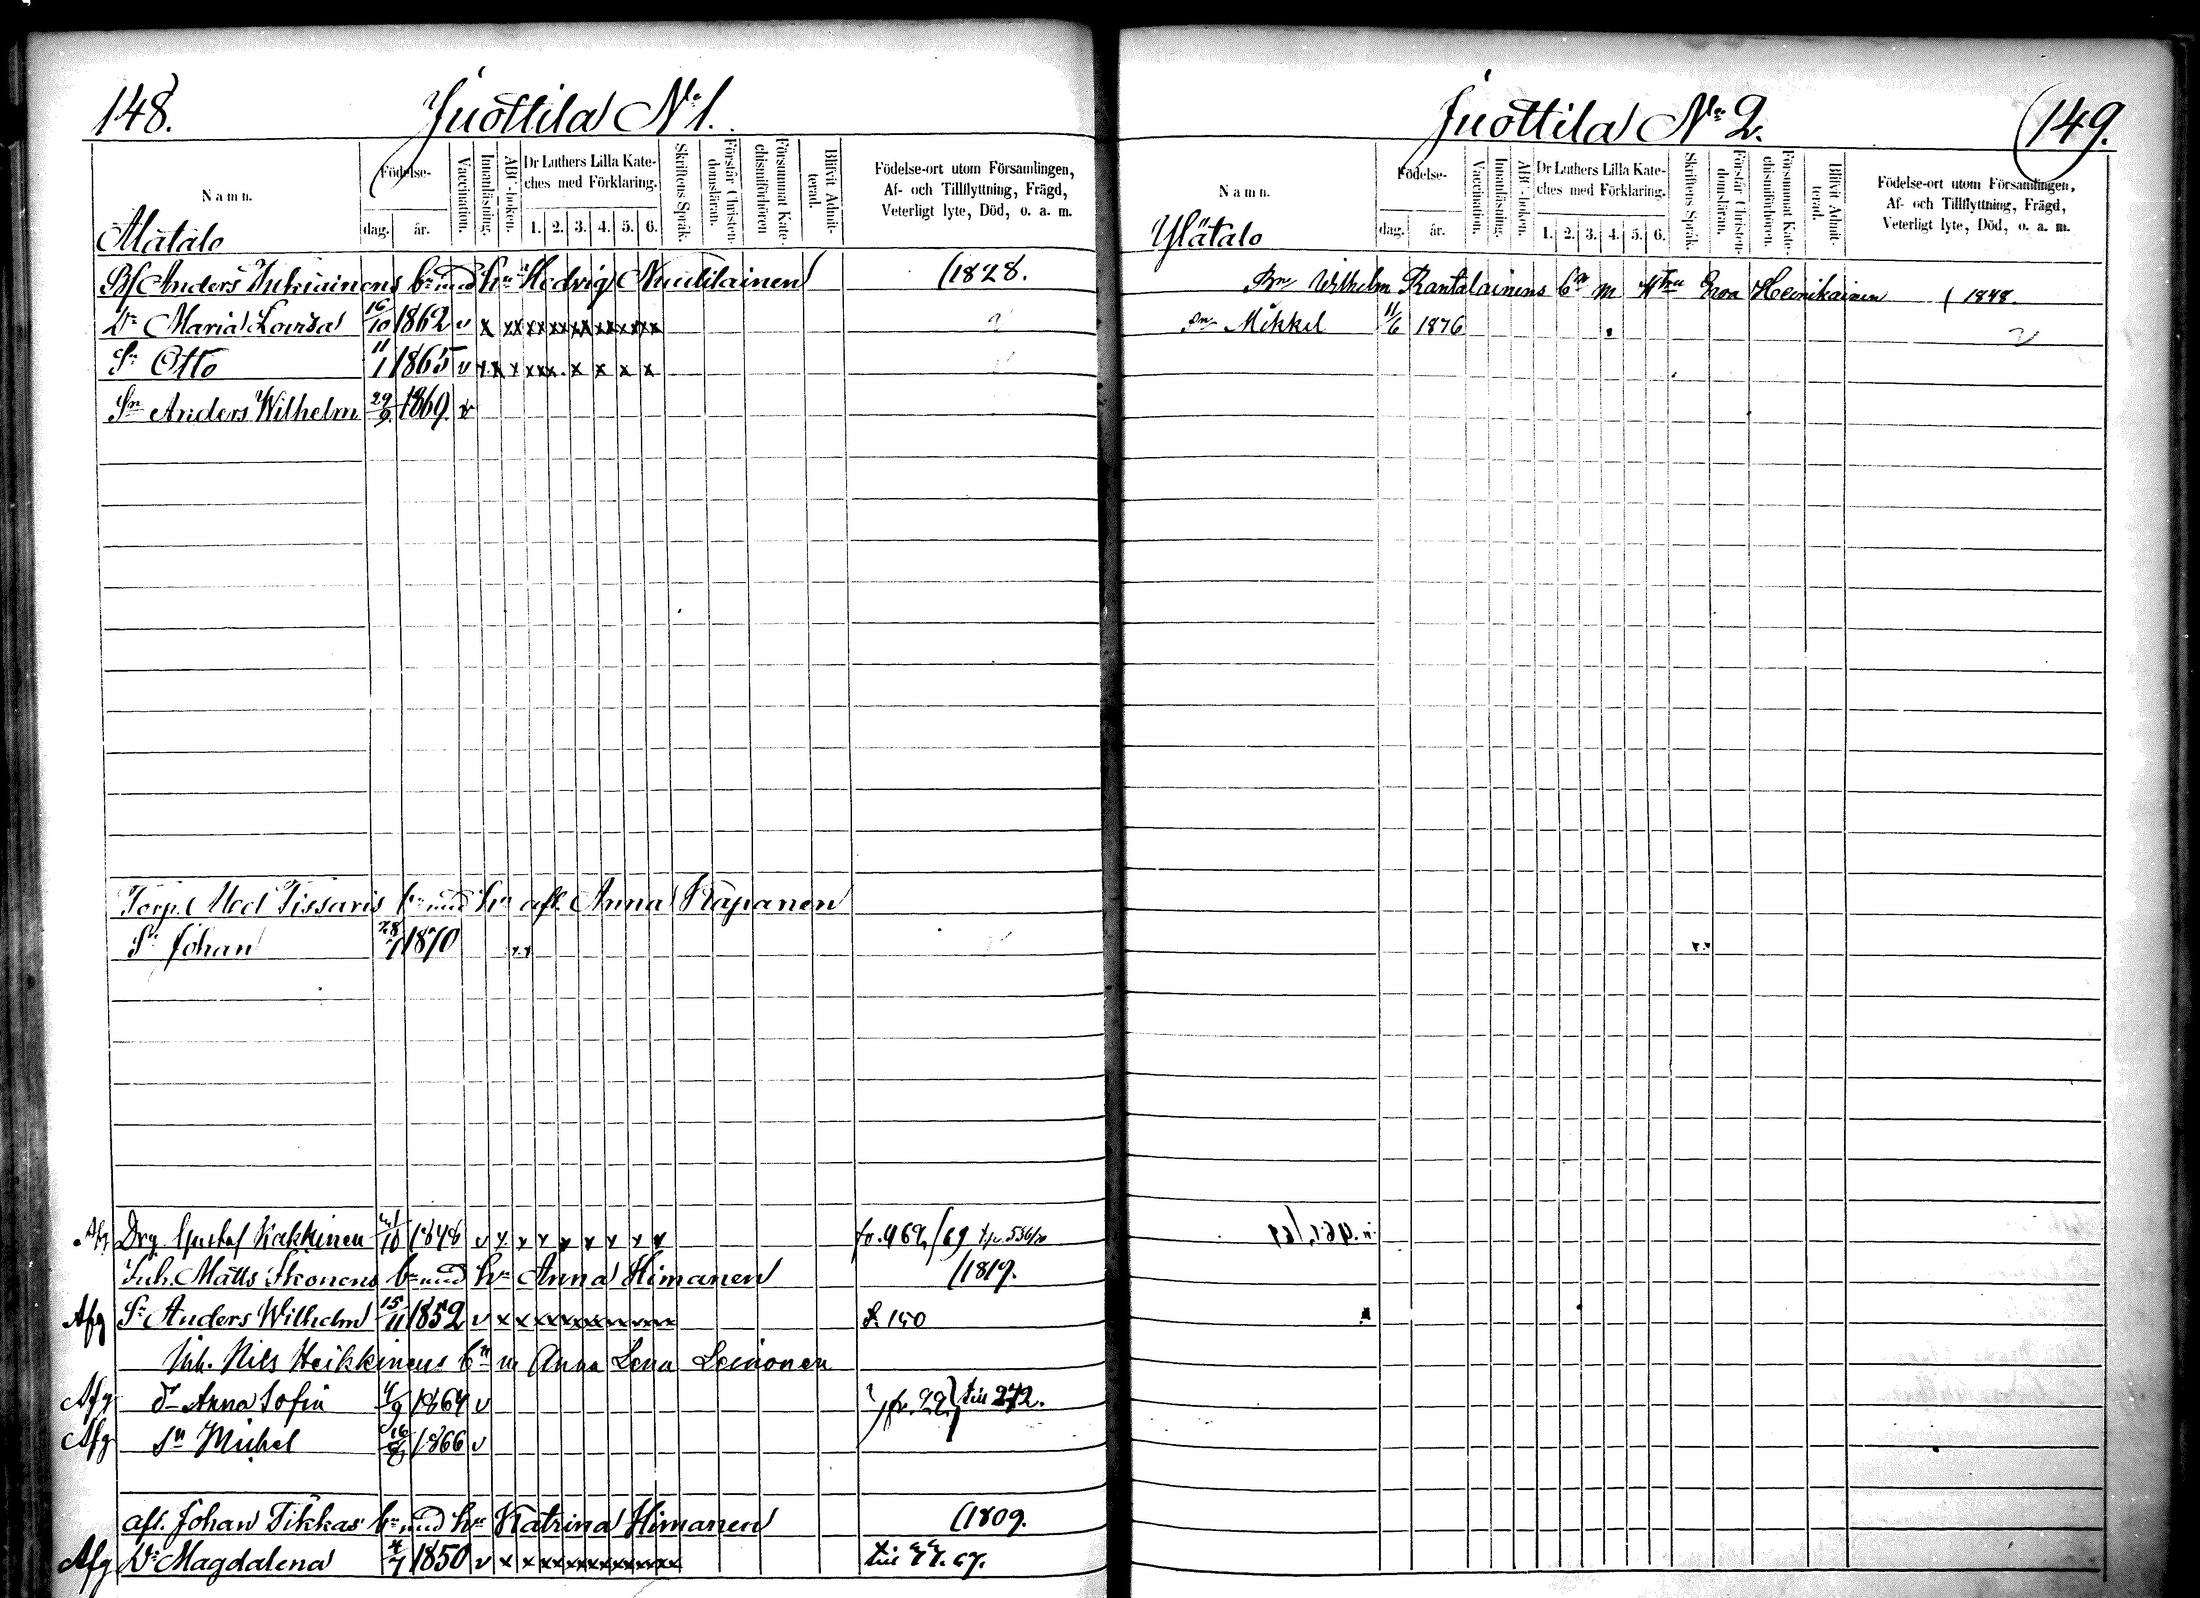 148.
Juottila No 1.
Namn.
Födelse-
dag.
år.
Vaccination.
Innanläsning.
ABC-boken.
Dr Luthers Lilla Kate-
ches med Förklaring.
1. 2. 3. 4. 5. 6.
Skriftens Språk.
Förstår Christen-
domsläran.
Försummat Kate-
chismiförhören
Blifvit Admit-
terad.
Födelse-ort utom Församlingen,
Af- och Tillflyttning, Frägd,
Veterligt lyte, Död, o. a. m.
Alatalo
Anders bn med hu Hedvig (1828.
Dr Maria Lovisa 16/10 1862 v x xx xx xx xx xx xx xx
Sn Otto 11/1 1865 v x x x xxx. x x x x
Sn Anders Wilhelm 29/9. 1869. v
Torp. bn med hu afl. Anna Kapanen
Sn Johan 28/7 1870
Afg Drg Gustaf Kakkinen /10 1848 v x x x x x x x x fr. 469/69
Inh. Matts Ikonens bn med hu Anna Himanen (1819.
Afg Sn Anders Wilhelm 15/11 1852 v x x xx xx xx xx xx xx S. 150
Inh. Nils Heikkinens bn m Anna Lena Leinonen
Afg dr Anna Sofia 4/9 1864 v fr. 22. till 272.
Afg sn Michel 16/8 1866 v
afl. Johan Tikkas bn med hu Katrina Himanen (1809.
Afg Dr Magdalena 4/7 1850 v x x xx xx xx xx xx xx till 67.
Juottila No 2.
149.
Namn.
Födelse-
dag.
år.
Vaccination.
Innanläsning.
ABC-boken.
Dr Luthers Lilla Kate-
ches med Förklaring.
1. 2. 3. 4. 5. 6.
Skriftens Språk.
Förstår Christen-
domsläran.
Försummat Kate-
chismiförhören.
Blifvit Admit-
terad.
Födelse-ort utom Församlingen,
Af- och Tillflyttning, Frägd,
Veterligt lyte, Död, o. a. m.
Ylätalo
Bn Wilhelm Rantalainens bn m Hstru Eva Heinikainen (1848.
sn Mikkel 11/6 1876